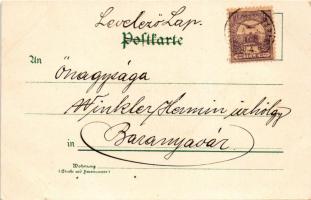 Levelező Lap.
Postkarte
An Őnagysága
Winkler Hermin úrhölgy
in Baranyavár
Wohnung
(Straße und Hausnummer)